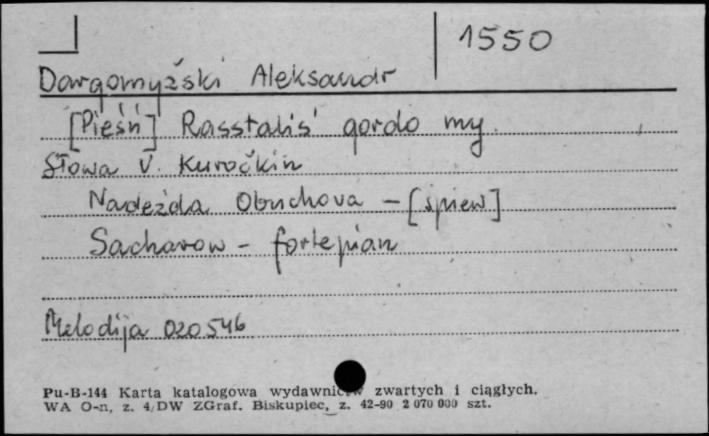 1550
Dargomyžski Aleksandr
[Pieśń] Rasstalis' gordo my.
Słowa V. Kuročkin
Nadežda Obuchova - [śpiew]
Sacharow - fortepian
Melodija 020546
Pu-B-144 Karta katalogowa wydawnictw zwartych i ciągłych.
WA O-n, z. 4/DW ZGraf. Biskupiec, z. 42-90 2 070 000 szt.